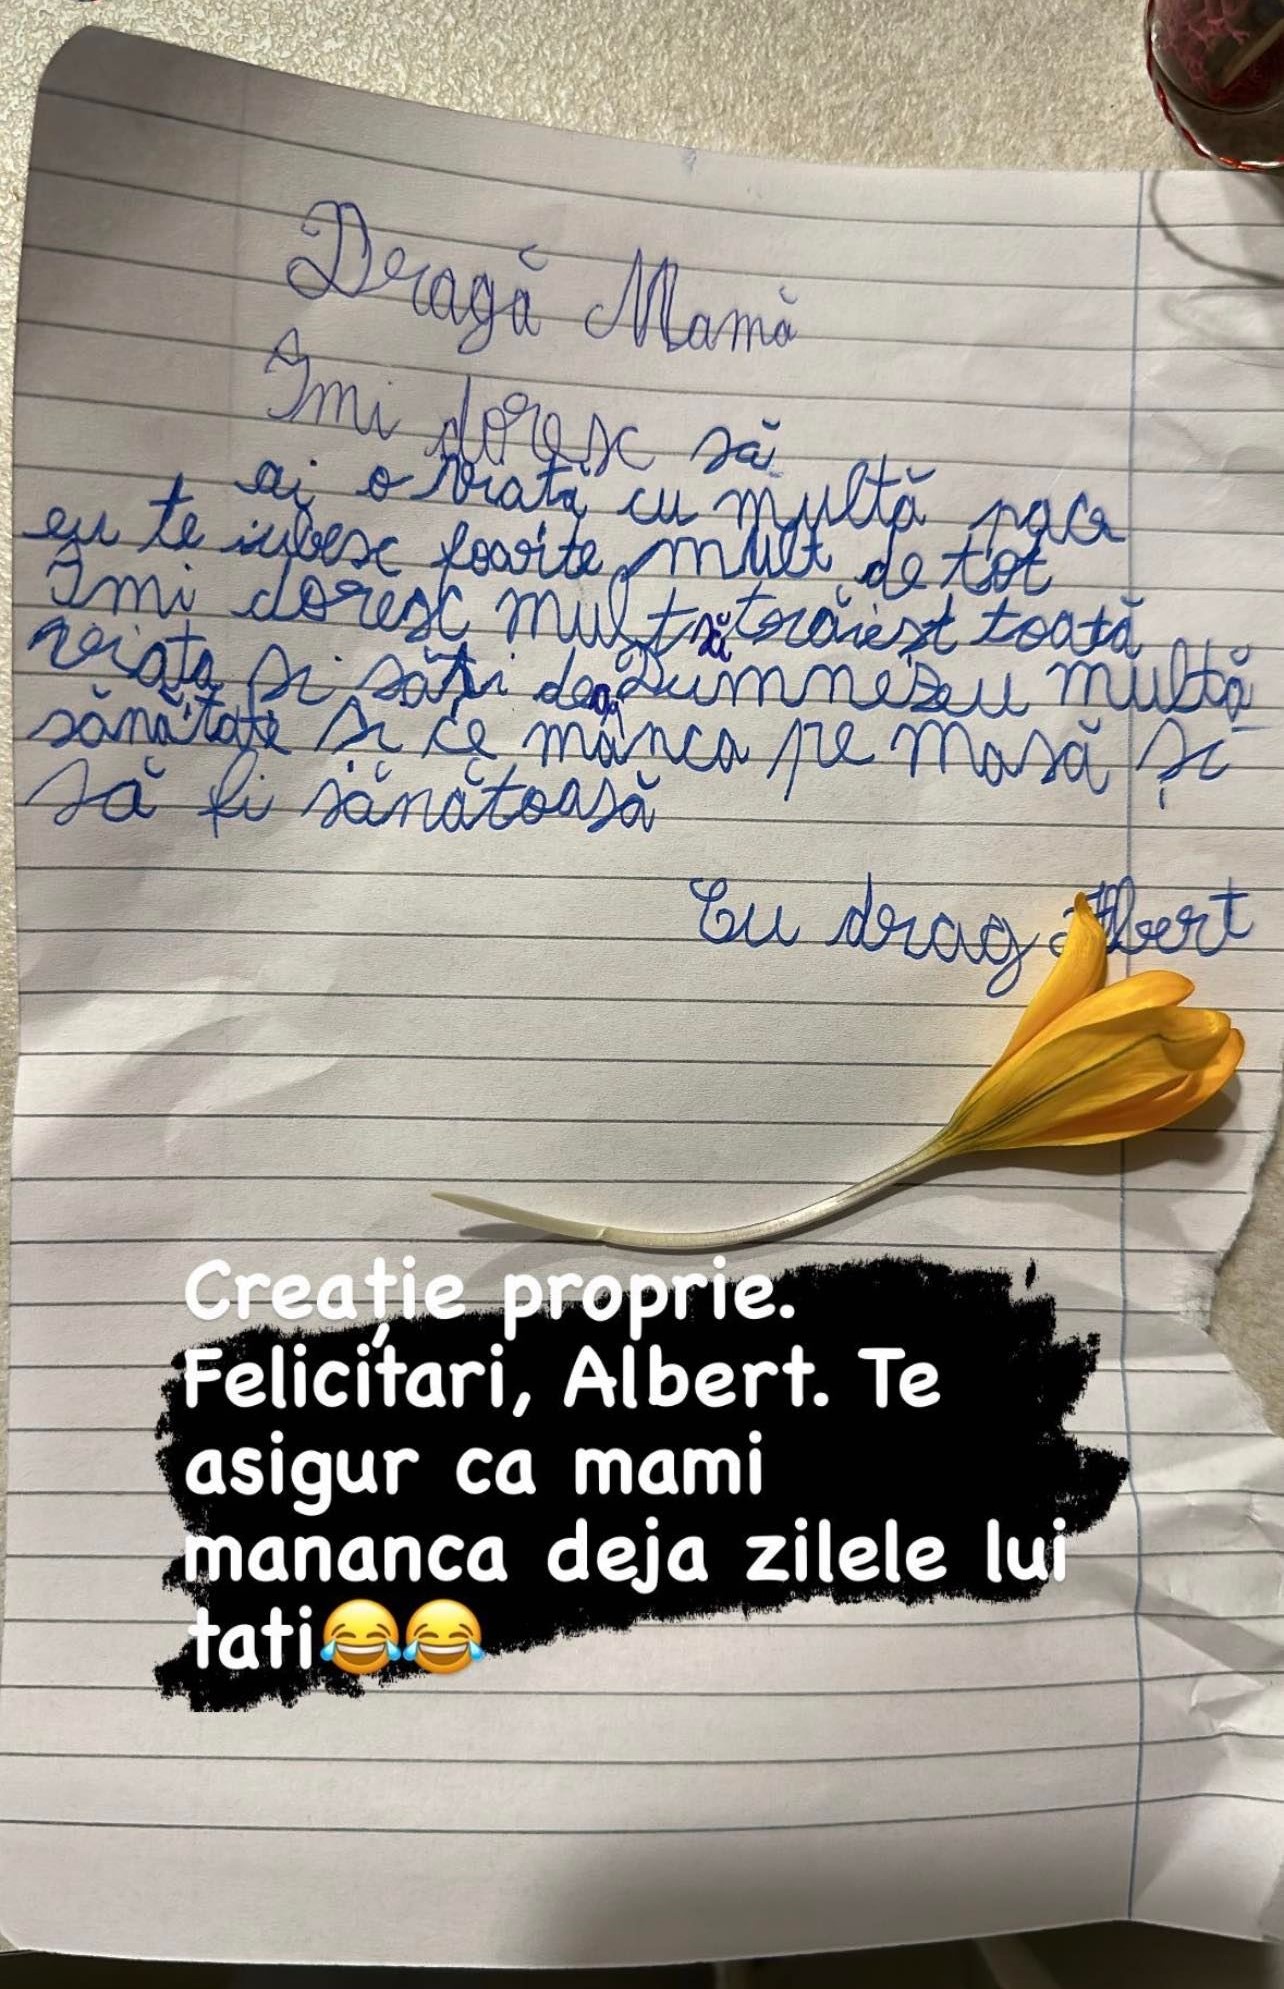 Dragă Mamă
Imi doresc să
ai o viată cu multă pace
eu te iubesc foarte mult de tot
Imi doresc mult să trăiest toată
viata si săti dea Dumnezeu multă
sănătate si ce mânca pe masă și
să fi sănătoasă
Cu drag Albert
Creație proprie.
Felicitari, Albert. Te
asigur ca mami
mananca deja zilele lui
tati😂😂